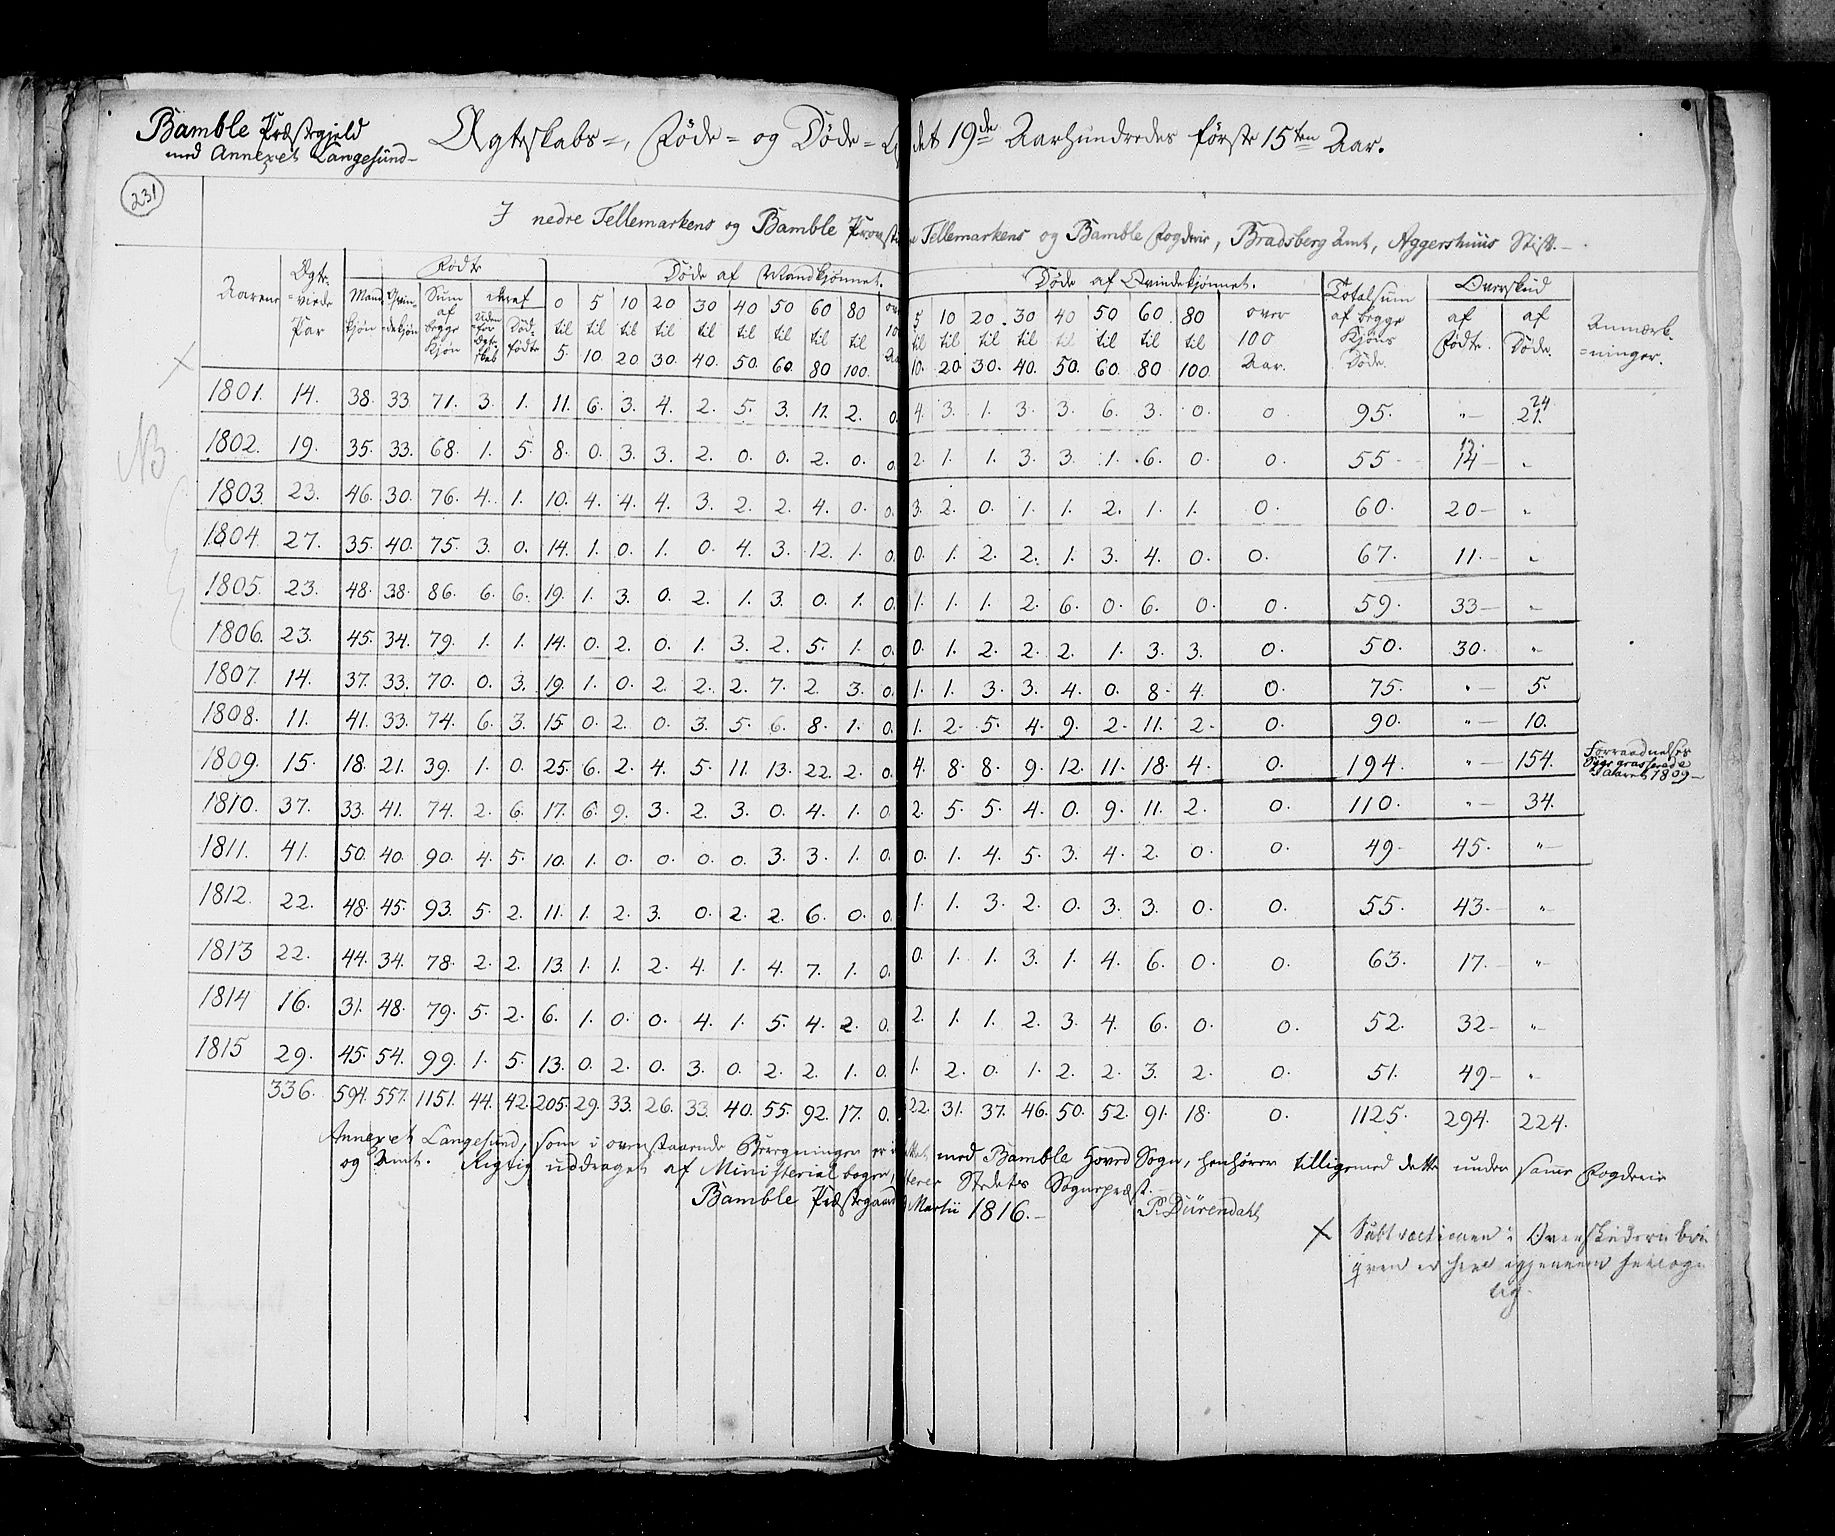 Bamble Præstegield
med Annexet Langesund
Ægteskabs-, Føde- og Døde- det 19de Aarhundredes første 15ten Aar.
231
I nedre Tellemarkens og Bamble Provstie Tellemarkens og Bamble Fogderie, Bradsberg Amt, Aggershuus Stift.
Aarene Ægte-viede Par Fødte Døde af Mandkjønnet. Døde af Qvindekjønnet. Totalsum af begge Kjøns Døde. Overskud Anmærk-ninger.
Mandkjøn Qvindekjøn Sum af begge Kjøn deraf uden for Ægteskab Dødfødte 0 til 5. 5 til 10. 10 til 20 20 til 30. 30 til 40. 40 til 50. 50 til 60. 60 til 80 80 til 100. 5 til 10. 10 til 20. 20 til 30. 30 til 40. 40 til 50. 50 til 60. 60 til 80 80 til 100 over 100 Aar. af Fødte. af Døde.
1801. 14. 38. 33 71. 3. 1. 11. 6. 3. 4. 2. 5. 3. 11. 2. 0. 4. 3. 1. 3. 3. 6. 3. 0. 0 95. "- 24 21.
NB
1802. 19. 35. 33. 68. 1. 5. 8. 0. 3. 3. 2. 0. 0. 2. 0. 0. 2. 1. 1. 3. 3. 1. 6. 0 0. 55 13. 14 "
1803. 23. 46. 30. 76. 4. 1. 10. 4. 4. 4. 3. 2. 2. 4. 0. 0. 3. 2. 0. 1. 1. 2. 1. 1. 0. 60. 20 "
1804. 27. 35. 40. 75. 3. 0. 14. 1. 0. 1. 0. 4. 3. 12. 1. 0. 0. 1. 2. 2. 1. 3. 4. 0. 0. 67. 11. "
1805. 23. 48. 38. 86. 6. 6. 19. 1. 3. 0. 2. 1. 3. 0. 1. 0. 1. 1. 1. 2. 6. 0. 6. 0. 0. 59. 33 "
1806. 23. 45. 34. 79. 1. 1. 14. 0. 2. 0. 1. 3. 2. 5. 1. 0. 0. 1. 2. 2. 2. 1. 3. 3. 0. 50. 30. "
1807. 14. 37. 33. 70. 0. 3. 19. 1. 0. 2. 2. 2. 7. 2. 3. 0. 1. 1. 3. 3. 4. 0. 8. 4. 0. 75. " 5.
1808. 11. 41. 33. 74. 6. 3. 15 0. 2. 0. 3. 5. 6. 8. 1. 0. 1. 2. 5. 4. 9. 2. 11. 2. 0. 90. " 10.
1809. 15. 18. 21. 39. 1. 0. 25. 6. 2. 4. 5. 11. 13. 22. 2. 0. 4. 8. 8. 9. 12. 11. 18. 4. 0. 194. " 154. Forraadnelses Syge grasserede i Aaret 1809
1810. 37. 33. 41. 74. 2. 6. 17. 6. 9. 3. 2. 3. 0. 4. 1. 0. 2. 5. 5. 4. 0. 9. 11. 2. 0. 110. " 34.
1811. 41. 50. 40. 90. 4. 5. 10. 1. 0. 0. 0. 0. 3. 3. 1. 0. 0. 1. 4. 5. 3. 4. 2. 0. 0. 49. 45. "
1812. 22. 48. 45. 93. 5. 2. 11. 1. 2. 3. 0. 2. 2. 6. 0. 0. 1. 1. 3. 2. 0. 3. 3. 0. 0. 55. 43. "
1813 22. 44. 34. 78. 2. 2. 13. 1. 1. 2. 4. 1. 4. 7. 1. 0. 0. 1. 1. 3. 1. 4. 6. 0. 0. 63. 17. "
1814 16. 31. 48. 79. 5. 2. 6. 1. 0. 0. 4. 1. 5. 4. 2. 0. 2. 1. 1. 2. 3. 4. 6. 0. 0. 52. 32 "
1815 29. 45. 54. 99. 1. 5. 13. 0. 2. 0. 3. 0. 2. 2. 1. 0. 1. 2. 0. 1. 2. 2. 3. 2. 0. 51. 49 "
336. 594. 557. 1151. 44. 42. 205. 29. 33. 26. 33. 40. 55. 92. 17. 0. 22. 31. 37. 46. 50. 52. 91. 18. 0. 1125. 294. 224.
Annexet Langesund, som i ovenstaaende Beregninger er med Bamble Hoved Sogn, henhører tilligemed dette under samme Fogderie
og Amt. Rigtig uddraget af Ministerialbogen, Stedets Sognepræst.
Bamble Præstegaard Martii 1816. P. Dürendahl
Subtractionen i
er her igjennem
lig.